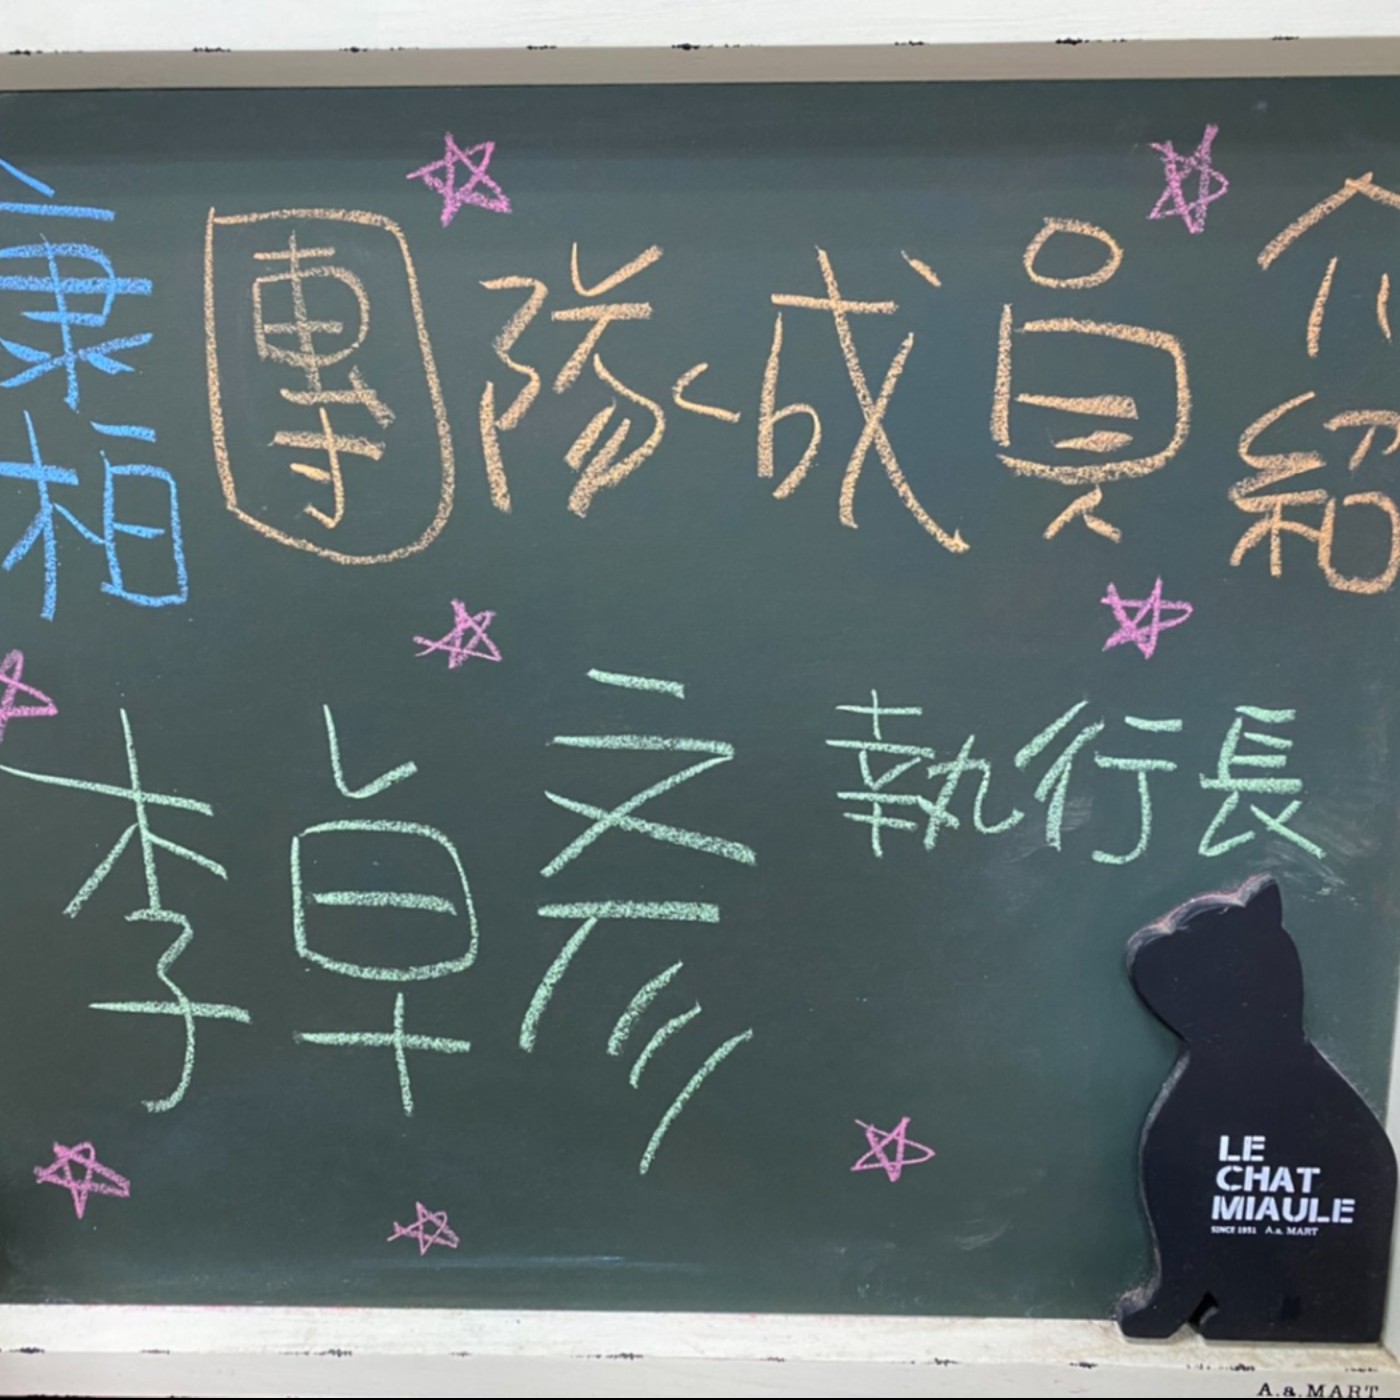 康柏
團隊成員介紹
李卓彥
執行長
LE
CHAT
MIAULE
SINCE 1951 A.a. MART
A.a.MART